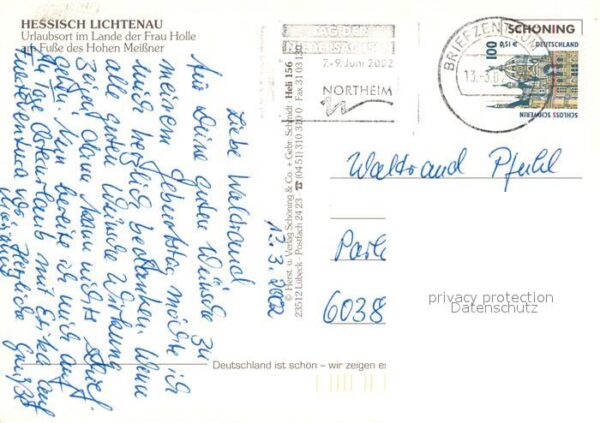 HESSISCH LICHTENAU
Urlaubsort im Lande der Frau Holle
am Fuße des Hohen Meißner
12.3.2002
Liebe Waldtraud
Für Deine guten Wünsche zu
meinem Geburtstag möchte ich
mich herzlich bedanken. Wenn
alle guten Wünsche Wirkung
zeigen, dann kann nichts schief
gehen. Nun bereite ich mich auf
Tage Osterurlaub mit Erika auf
Fuerteventura vor. Herzliche Grüße
© Herst. u. Verlag Schöning & Co. + Gebr. Schmidt
23512 Lübeck · Postfach 24 23 · ☎ (04 51) 310 310 Fax 31 03
Heli 156
TAG DER
NIEDERSACHSEN
7.-9. Juni 2002
NORTHEIM
BRIEFZENTRUM
13.-3.0
SCHÖNING
100
0,51 €
DEUTSCHLAND
SCHLOSS SCHWERIN
Waltraud Pfuhl
Park
6038
privacy protection
Datenschutz
Deutschland ist schön – wir zeigen es